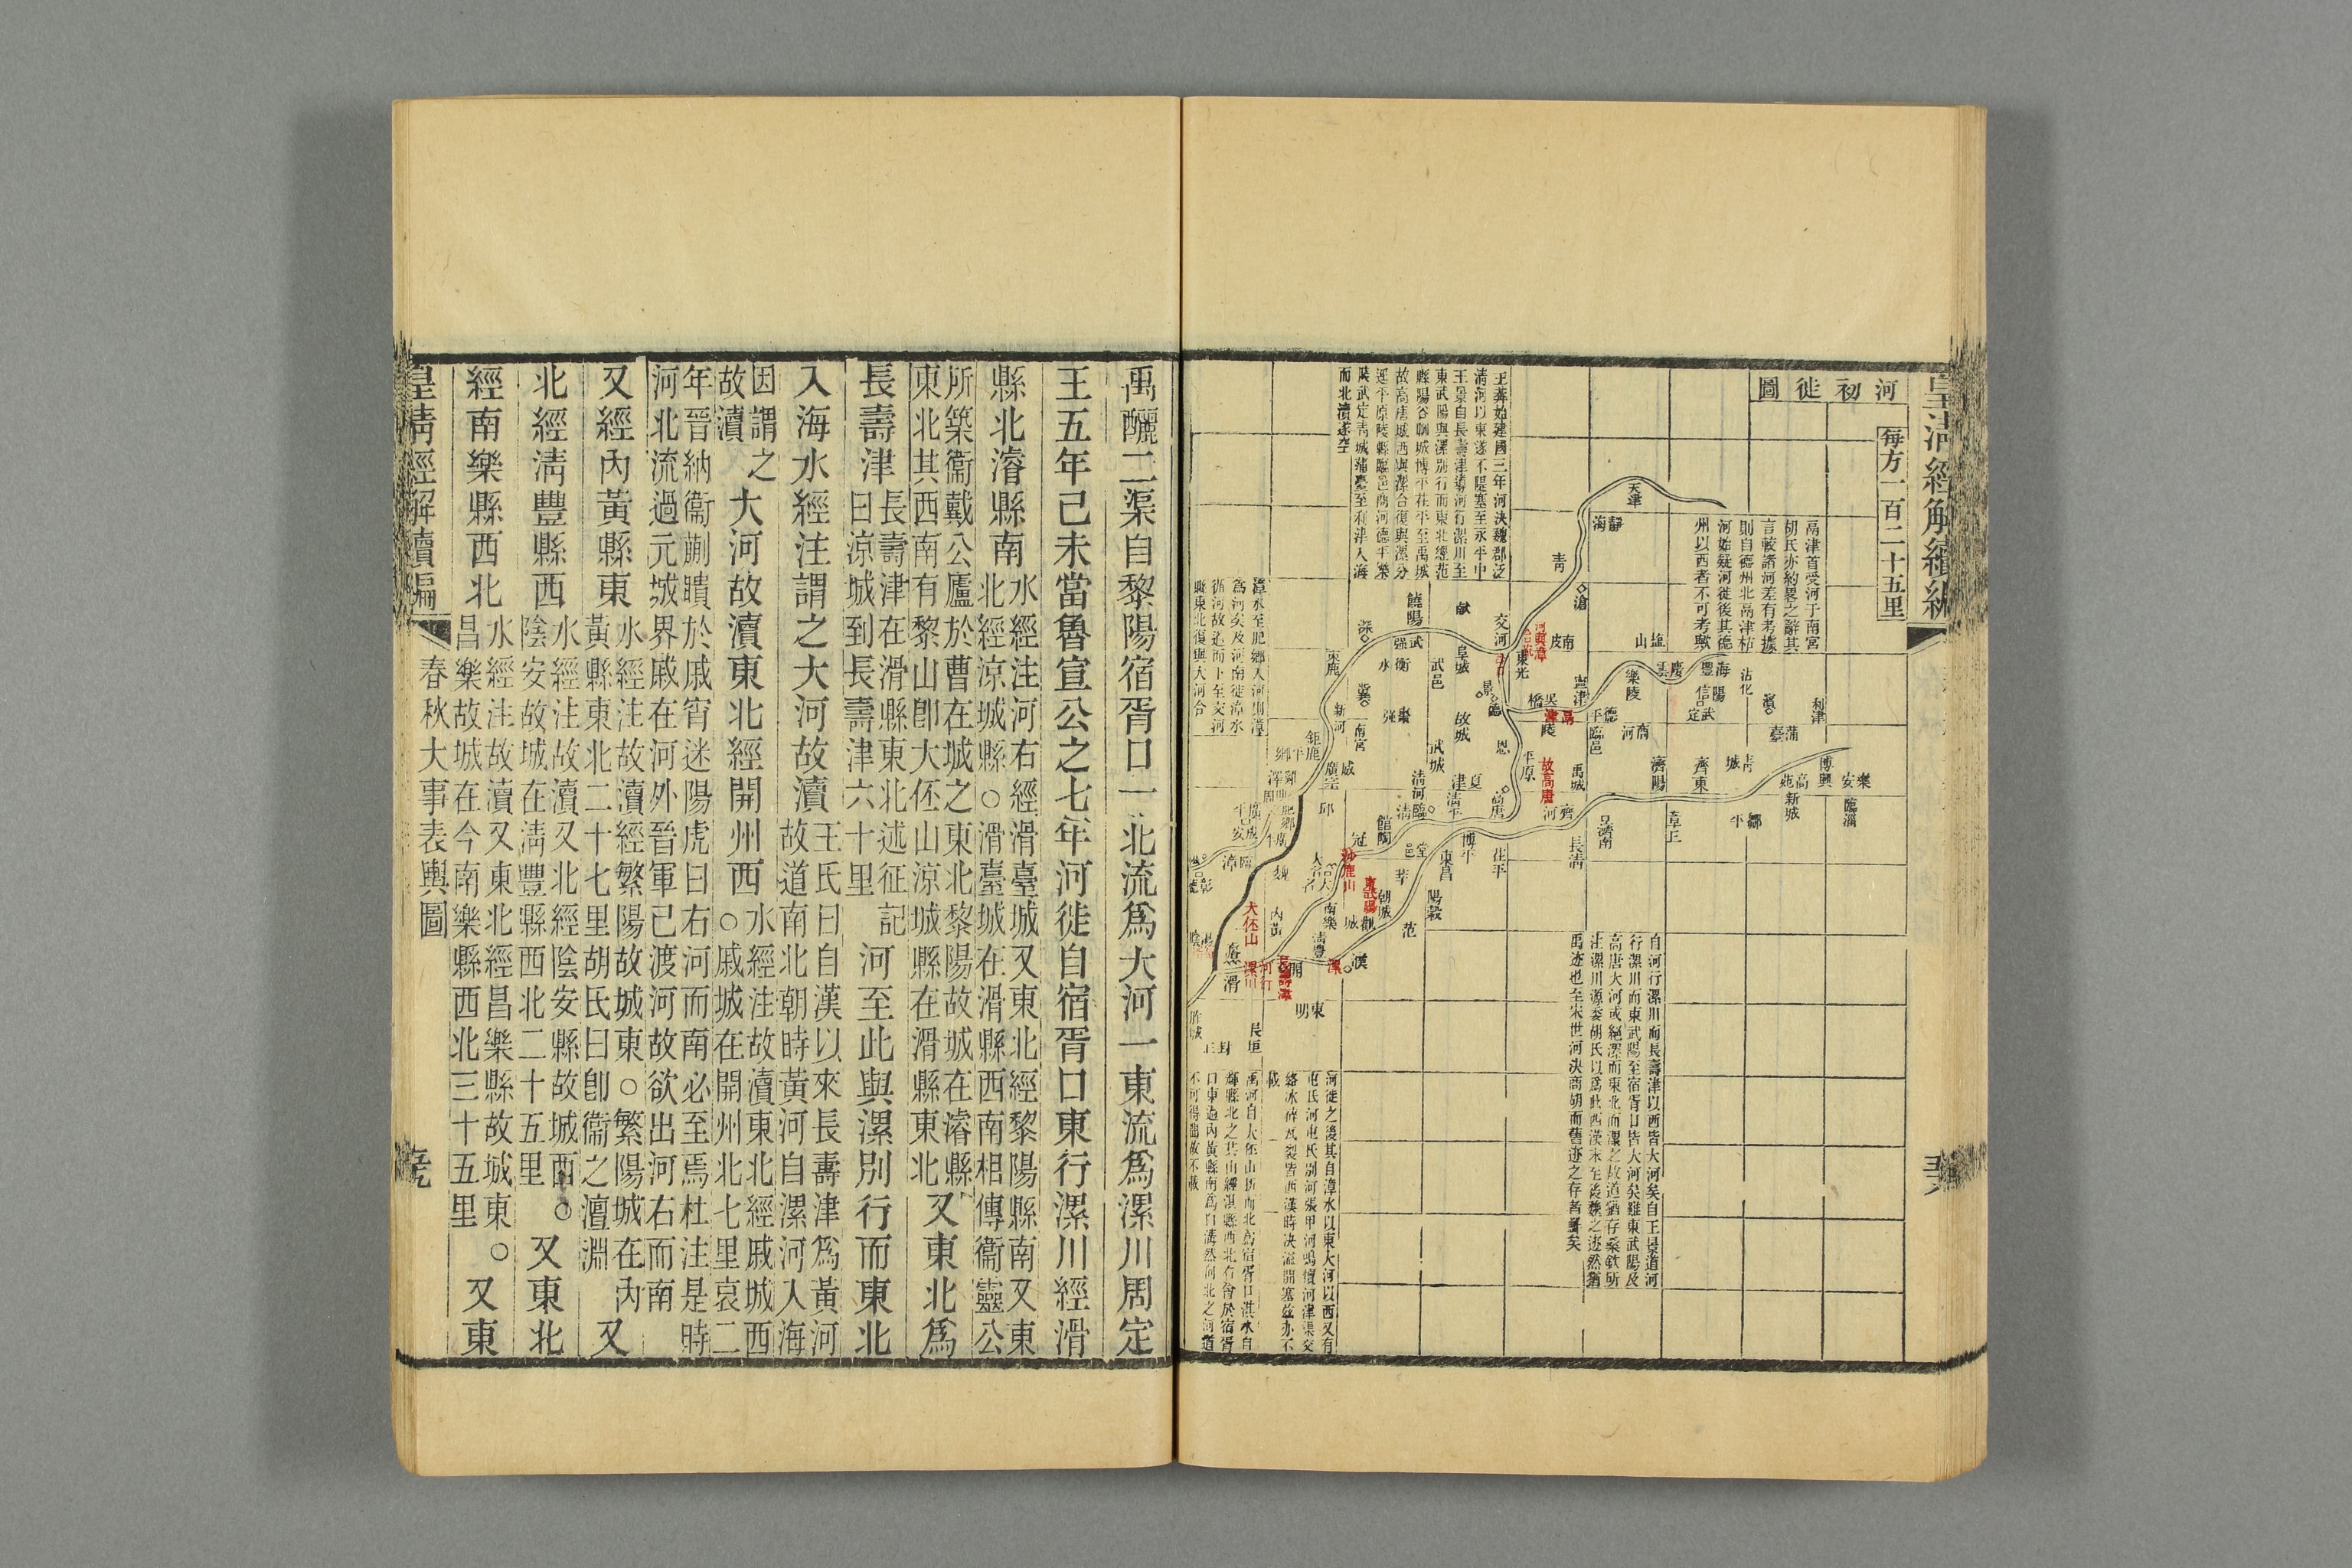 皇淸經解續編
河初徙圖
每方一百二十五里
鬲津首受河于南宮
胡氏亦約畧之辭其
言較諸河差有考據
則自德州北鬲津枯
河始疑河徙後其德
州以西者不可考歟
王莽始建國三年河決魏郡泛
淸河以東遂不隄塞至永平中
王景自長壽津導河行漯川至
東武陽與漯別行而東北經范
縣陽谷聊城博平茌平至禹城
故高唐城西與漯合復與漯分
逕平原陵縣臨邑商河德平樂
陵武定靑城蒲臺至利津入海
而北瀆遂空
漳水至肥鄉入河則漳
爲河矣及河南徙漳水
循河故道而下至交河
縣東北復與大河合
自河行漯川而長壽津以西皆大河矣自王景道河
行漯川而東武陽至宿胥口皆大河矣雖東武陽及
高唐大河或絕漯而東北而漯之故道猶存桑欽所
注漯川源委胡氏以爲此西漢末至後漢之迹然猶
禹迹也至宋世河決商胡而舊迹之存者鮮矣
河徙之後其自漳水以東大河以西又有
屯氏河屯氏別河張甲河鳴犢河津渠交
絡冰碎瓦裂皆西漢時決溢開塞兹亦不
載
禹河自大伾山折而北爲宿胥口淇水自
輝縣北之共山經淇縣西北右會於宿胥
口東過內黃縣南爲白溝然河北之河道
不可得詘故不載
天津
靜海
靑
滄
鹽山
南皮
交河
東光
獻
饒陽
深
武強
阜城
衡水
武邑
束鹿
冀
景
德
寧津
吳橋
樂陵
慶雲
海豐
陽信
沾化
濱
利津
武定
蒲臺
商河
德平
臨邑
陵
鬲津
故城
武城
恩
平原
禹城
濟陽
齊東
靑城
博興
高苑
樂安
新城
臨淄
鄒平
章丘
濟南
齊河
長淸
故高唐
高唐
夏津
淸平
淸河
臨淸
威
廣宗
南宮
新河
鉅鹿
平鄉
邱
館陶
冠
堂邑
博平
茌平
東昌
莘
陽穀
朝城
東武陽
沙鹿川
范
觀城
南樂
淸豐
大名
魏
臨漳
彰德
內黃
大伾山
濬
滑
漯川
河行
長壽津
開
漯
濮
東明
長垣
封丘
胙城
禹釃二渠自黎陽宿胥口一北流爲大河一東流爲漯川周定
王五年己未當魯宣公之七年河徙自宿胥口東行漯川經滑
縣北濬縣南水經注河右經滑臺城又東北經黎陽縣南又東
北經涼城縣○滑臺城在滑縣西南相傳衞靈公
所築衞戴公廬於曹在城之東北黎陽故城在濬縣
東北其西南有黎山卽大伾山涼城縣在滑縣東北又東北爲
長壽津長壽津在滑縣東北述征記
曰涼城到長壽津六十里河至此與漯別行而東北
入海水經注謂之大河故瀆王氏曰自漢以來長壽津爲黃河
故道南北朝時黃河自漯河入海
因謂之
故瀆大河故瀆東北經開州西水經注故瀆東北經戚城西
○戚城在開州北七里哀二
年晉納衞蒯聵於戚宵迷陽虎曰右河而南必至焉杜注是時
河北流過元城界戚在河外晉軍已渡河故欲出河右而南
又經內黃縣東水經注故瀆經繁陽故城東○繁陽城在內
黃縣東北二十七里胡氏曰卽衞之澶淵又
北經淸豐縣西水經注故瀆又北經陰安縣故城西○
陰安故城在淸豐縣西北二十五里又東北
經南樂縣西北水經注故瀆又東北經昌樂縣故城東○
昌樂故城在今南樂縣西北三十五里又東
皇淸經解續編
春秋大事表輿圖